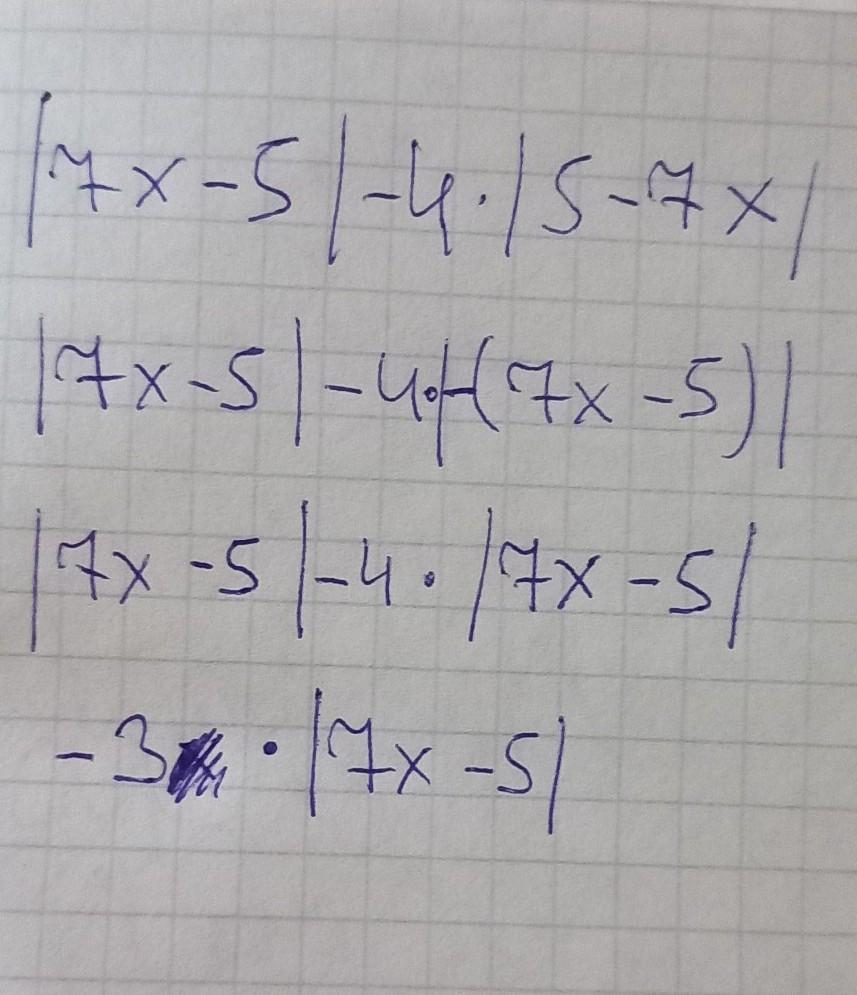 |7x-5|-4·|5-7x|
|7x-5|-4·|-(7x-5)|
|7x-5|-4·|7x-5|
-3·|7x-5|